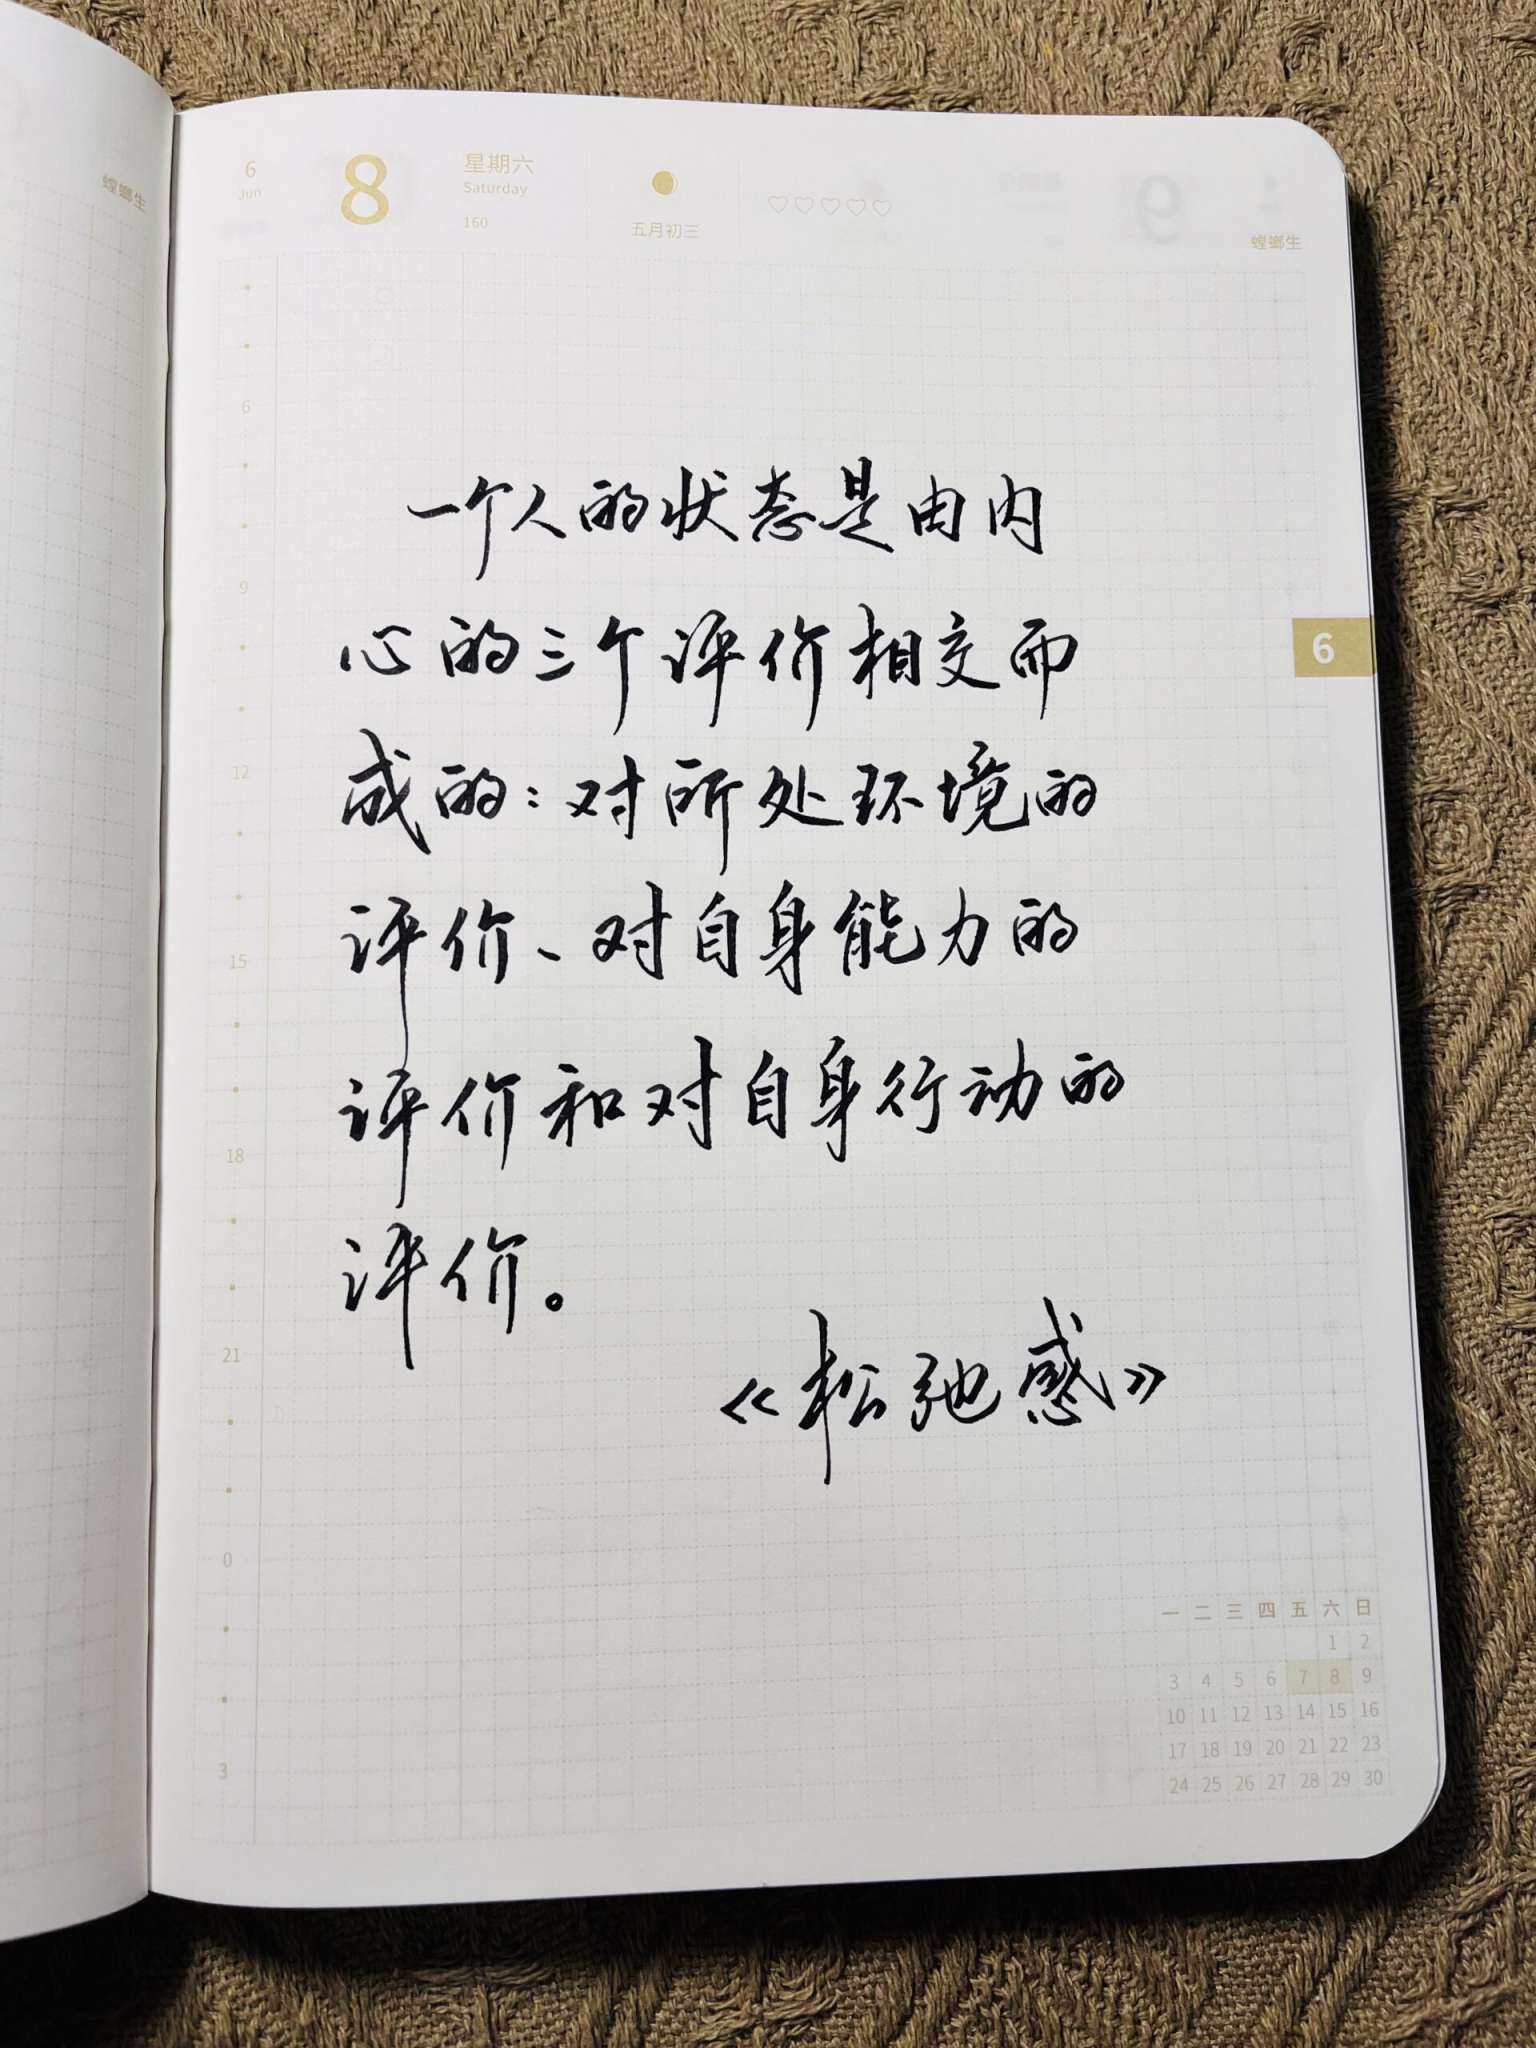 6
Jun
8
星期六
Saturday
160
五月初三
螳螂生
螳螂生
一个人的状态是由内
心的三个评价相交而
成的：对所处环境的
评价、对自身能力的
评价和对自身行动的
评价。
《松弛感》
6
6
9
12
15
18
21
0
3
一 二 三 四 五 六 日
1 2
3 4 5 6 7 8 9
10 11 12 13 14 15 16
17 18 19 20 21 22 23
24 25 26 27 28 29 30